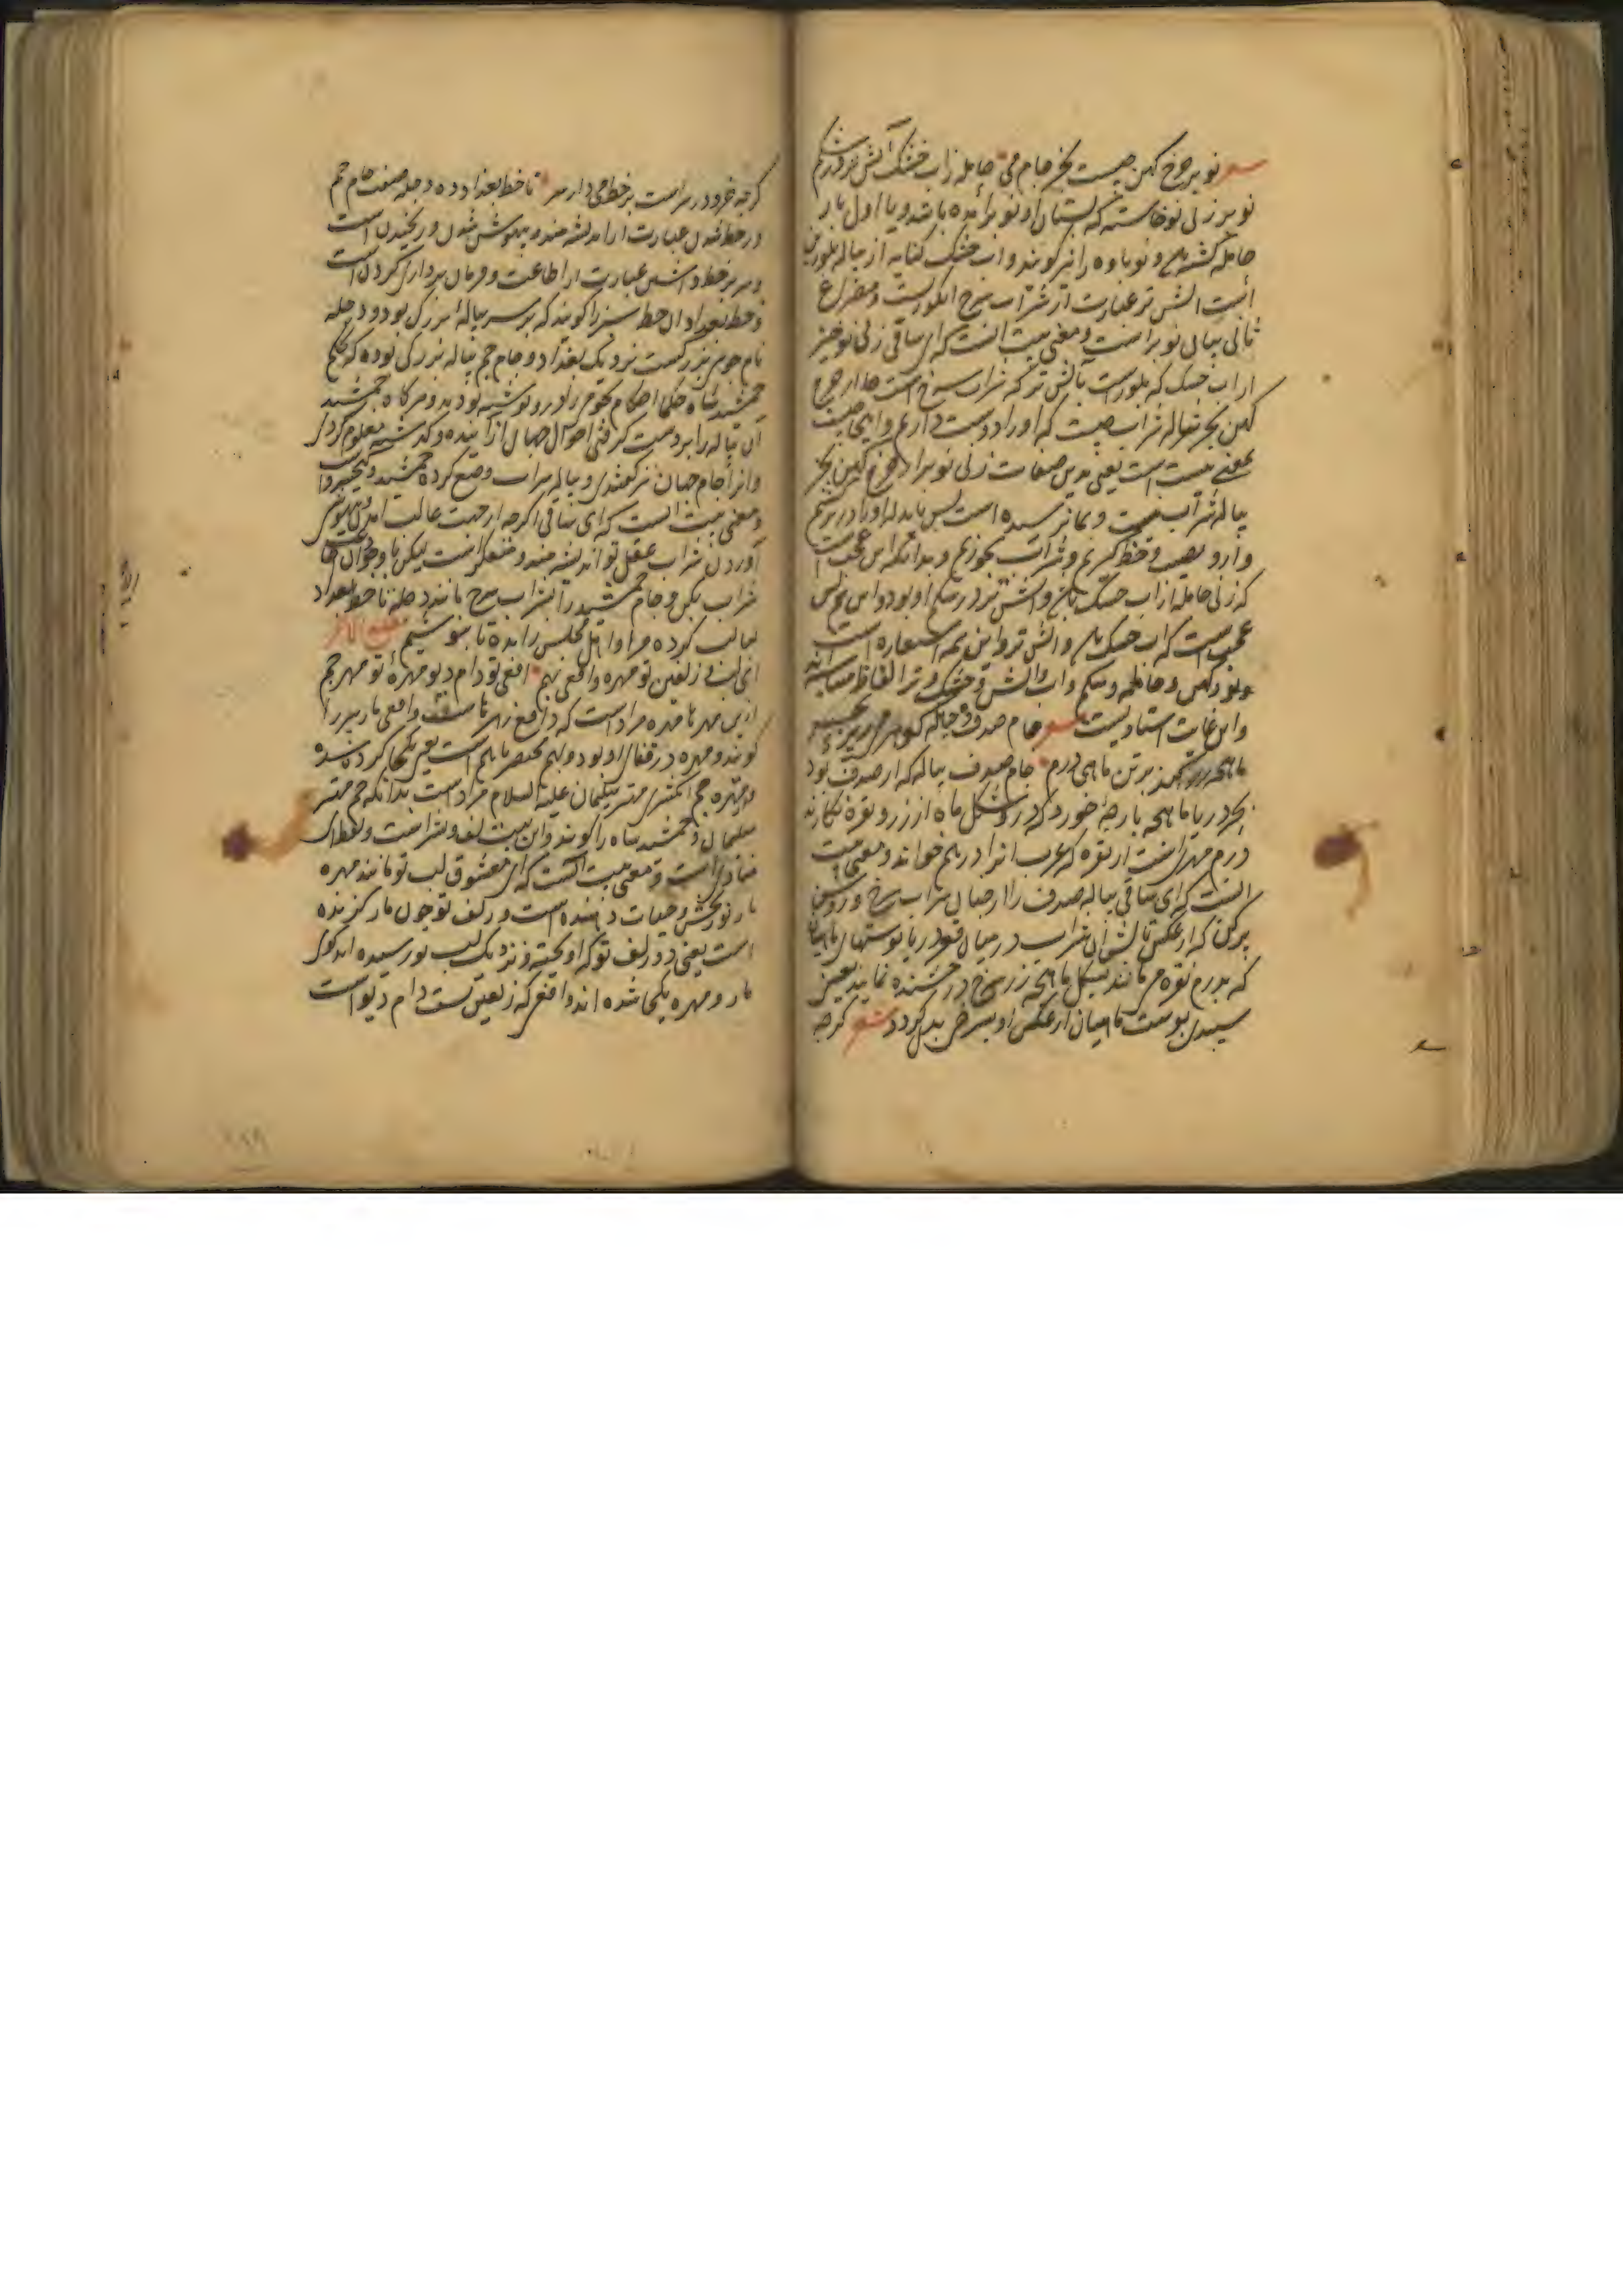 نوبر چرخ کهن چیست بجز جام می حامله زاب خشک آتش تر در شکم
نوبر زنی نوخاسته که پستان او نو برآمده باشد و یا اول بار
حامله گشته و نوباوه را نیز گویند و اب خشک کنایه از پیاله بلورین
است آتش تر عبارت از شراب سرخ انگوریست و مصراع
ثانی بیان نوبر است و معنی بیت انست که ای ساقی زنی نوخیز
از اب خشک که بلورست بآتش تر که شراب سرخ است حامله از چرخ
کهن بجز پیاله شراب چیست که او را دوست داریم و
یعنی نیست یعنی بدین صفات زنی نوبر از چرخ کهن بجز
پیاله شراب نیست و بما نرسیده است پس باید که او را در بر کشیم
و از و نصیب و حظ گیریم و شراب بخوریم و بدانکه این عجب است
که زنی حامله از اب خشک و آتش تر در شکم او بود و این هم بس
عجب است که اب خشک و آتش تر و این همه استعاره است
و نو و کهن و حامله و شکم و اب و آتش و خشک و تر الفاظ متناسبه
و این غایت استادیست شعر جام صدف
ماهچه زر کند بر تن ماهی درم جام صدف پیاله که از صدف بود
ماهچه پارچه خورد که در شکل ماه از زر و نقره نگارند
درم مهری است از نقره که عرب انرا درهم خواند و معنی بیت
انست که ای ساقی پیاله صدف را از چنان شراب سرخ و روشن
پر کن که از عکس تابش ان شراب در میان قعر دریا پوستهای ماهیان
که بدرم نقره می مانند بشکل ماهچه زر سرخ درخشنده نماید یعنی
سپیدی پوست ماهیان از عکس او بسرخی بدل گردد شعر گرچه
گرچه خرد در سر است بر خط می دار سر تا خط بغداد ده دجله صفت جام جم
در خط شدن عبارت از اندیشه مند و بیهوش شدن و رنجیدن است
و سر بر خط داشتن عبارت از اطاعت و فرمان برداری کردن است
و خط بغداد ان خط سبز را گویند که بر سر پیاله بزرگ بود و دجله
نام جوی بزرگست نزدیک بغداد و جام جم پیاله بزرگی بوده که بحکم
جمشید شاه حکما احکام نجوم را در و نوشته بودند و هرگاه جمشید
آن پیاله را بر دست گرفتی احوال جهان از آینده و گذشته معلوم کردی
و انرا جام جهان نیز گفتندی و پیاله شراب وضع کرده جمشید و کیخسرو است
و معنی بیت انست که ای ساقی اگرچه از جهت غالب امدن و بیهوش
آوردن شراب عقل تو اندیشه مند و متفکر است لیکن با وجود آن
شراب بکن و جام جمشید را بشراب سرخ مانند دجله تا خط بغداد
لبالب کرده مرا و اهل مجلس را بده تا بنوشیم مطلع الاخر
ای لب و زلفین تو مهره و افعی بهم افعی تو دام دیو مهره تو مهر جم
ازین مهر تا مهره مراد است که دافع زهر باشد و افعی مار نر را
گویند و مهره در قفای او بود و بهم مختصر باهم است یعنی یکجا کرده شده
و مهره جم انگشتری مهتر سلیمان علیه السلام مراد است بدانکه جم مهتر
سلیمان و جمشید شاه را گویند و این بیت لف و نشر است و لفظ ای
منادی است و معنی بیت انست که ای معشوق لب تو مانند مهره
مار نوربخش و حیات دهنده است و زلف تو چون مار گزنده
است یعنی دو زلف تو که آویخته و نزدیک لب تو رسیده اند گوی
مار و مهره یکجا شده اند و افعی که زلفین تست دام دیو است